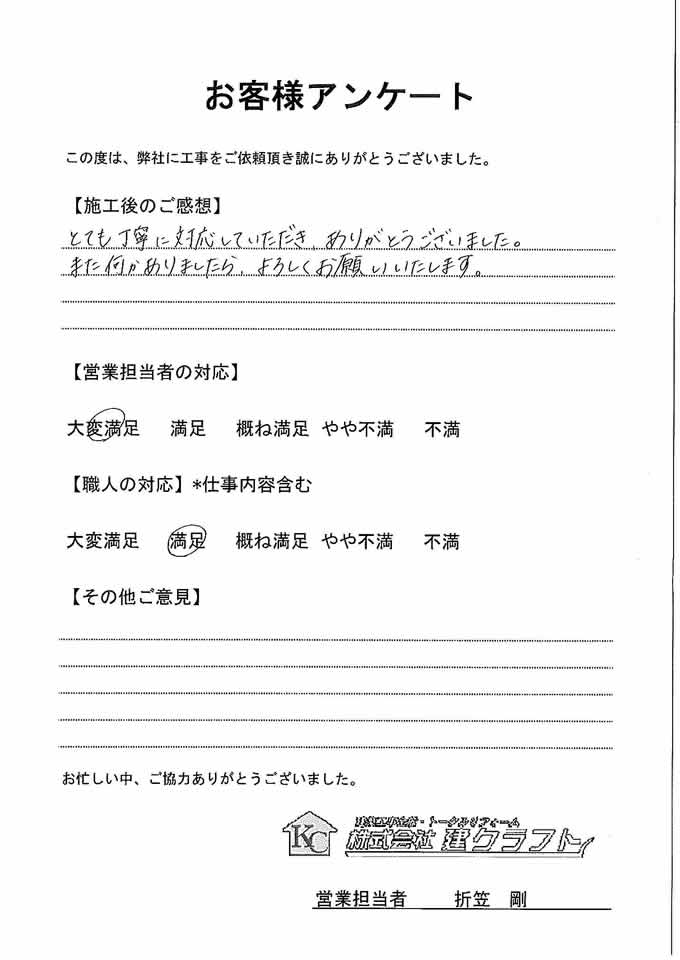 お客様アンケート
この度は、弊社に工事をご依頼頂き誠にありがとうございました。
【施工後のご感想】
とても丁寧に対応していただき、ありがとうございました。
また何かありましたら、よろしくお願いいたします。
【営業担当者の対応】
大変満足 満足 概ね満足 やや不満 不満
【職人の対応】*仕事内容含む
大変満足 満足 概ね満足 やや不満 不満
【その他ご意見】
お忙しい中、ご協力ありがとうございました。
・トータルリフォーム
KC 株式会社 建クラフト
営業担当者 折笠 剛